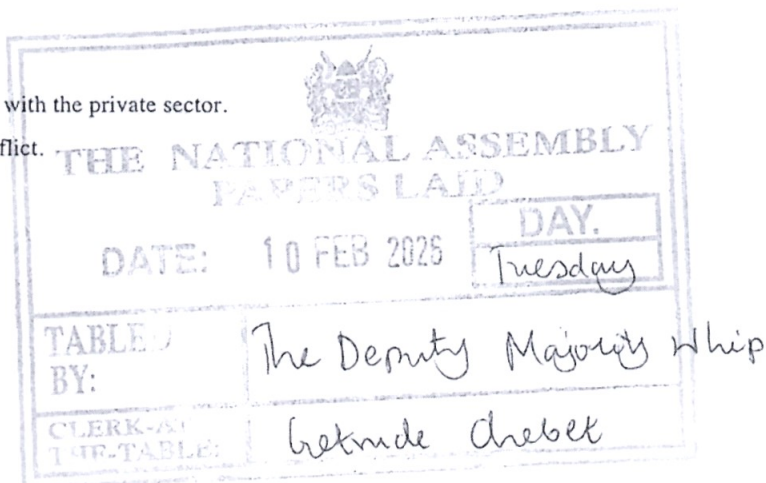 with the private sector.
flict.
THE NATIONAL ASSEMBLY
PAPERS LAID
DATE: 10 FEB 2026
DAY.
Tuesday
TABLED
BY:
The Deputy Majority Whip
CLERK-AT
THE-TABLE:
Getrude Chebet